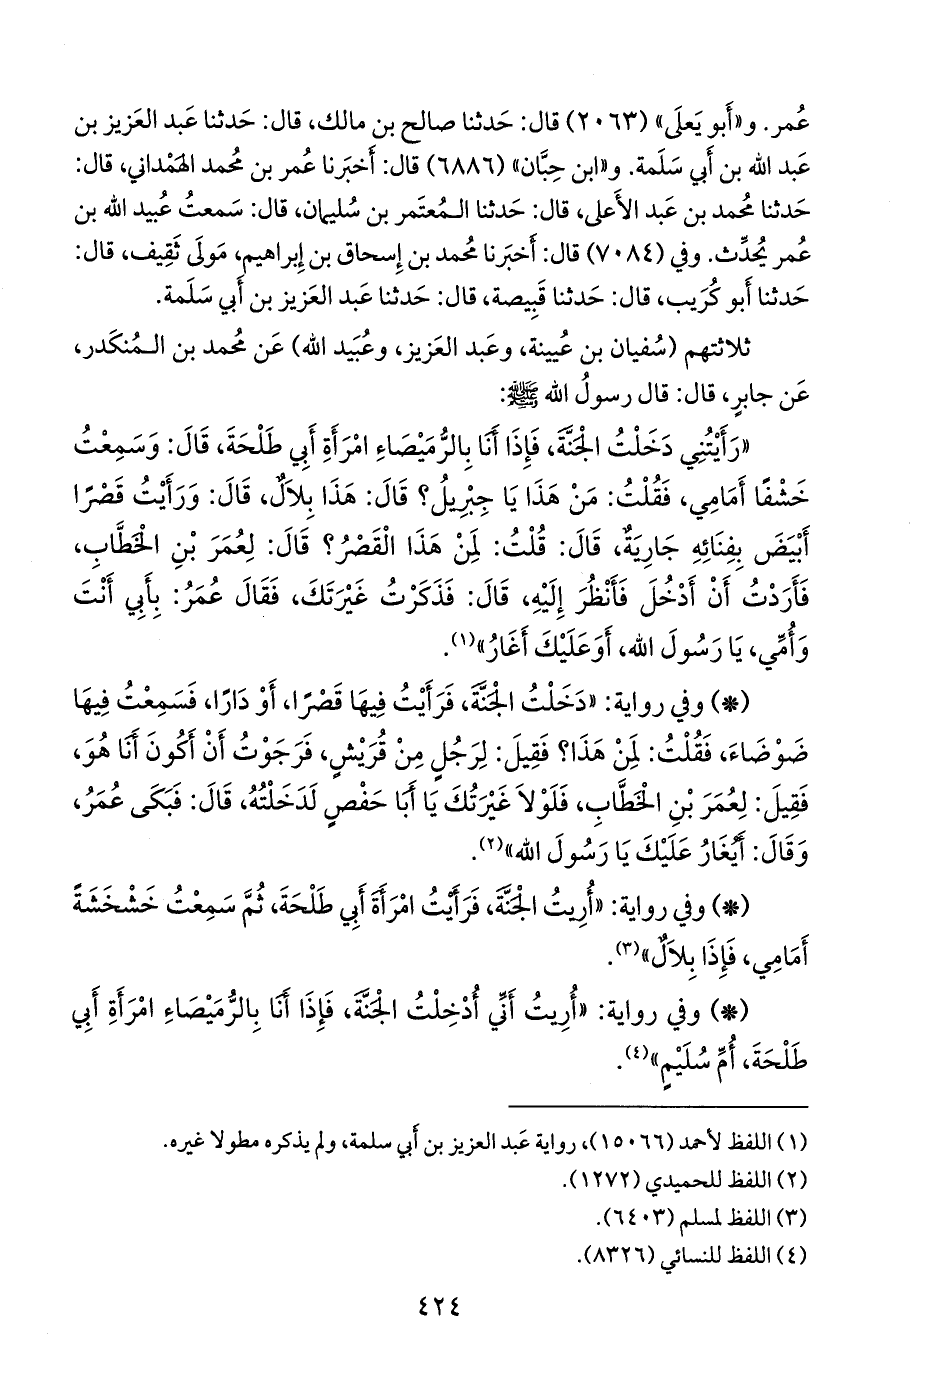 عُمر. و«أَبو يَعلَى» (٢٠٦٣) قال: حَدثنا صالح بن مالك، قال: حَدثنا عَبد العَزيز بن
عَبد الله بن أَبي سَلَمة. و«ابن حِبَّان» (٦٨٨٦) قال: أَخبَرنا عُمر بن مُحمد الهَمْداني، قال:
حَدثنا مُحمد بن عَبد الأَعلى، قال: حَدثنا الـمُعتَمر بن سُليمان، قال: سَمعتُ عُبيد الله بن
عُمر يُحدِّث. وفي (٧٠٨٤) قال: أَخبَرنا مُحمد بن إِسحاق بن إِبراهيم، مَولَى ثَقِيف، قال:
حَدثنا أَبو كُرَيب، قال: حَدثنا قَبيصة، قال: حَدثنا عَبد العَزيز بن أَبي سَلَمة.
ثلاثتهم (سُفيان بن عُيينة، وعَبد العَزيز، وعُبَيد الله) عَن مُحمد بن الـمُنكَدر،
عَن جابرٍ، قال: قال رسولُ الله ﷺ:
«رَأَيْتُنِي دَخَلْتُ الجَنَّةَ، فَإِذَا أَنَا بِالرُّمَيْصَاءِ امْرَأَةِ أَبِي طَلْحَةَ، قَالَ: وَسَمِعْتُ
خَشْفًا أَمَامِي، فَقُلْتُ: مَنْ هَذَا يَا جِبْرِيلُ؟ قَالَ: هَذَا بِلاَلٌ، قَالَ: وَرَأَيْتُ قَصْرًا
أَبْيَضَ بِفِنَائِهِ جَارِيَةٌ، قَالَ: قُلْتُ: لِمَنْ هَذَا الْقَصْرُ؟ قَالَ: لِعُمَرَ بْنِ الخَطَّابِ،
فَأَرَدْتُ أَنْ أَدْخُلَ فَأَنْظُرَ إِلَيْهِ، قَالَ: فَذَكَرْتُ غَيْرَتَكَ، فَقَالَ عُمَرُ: بِأَبِي أَنْتَ
وَأُمِّي، يَا رَسُولَ الله، أَوَعَلَيْكَ أَغَارُ»(١).
(*) وفي رواية: «دَخَلْتُ الجَنَّةَ، فَرَأَيْتُ فِيهَا قَصْرًا، أَوْ دَارًا، فَسَمِعْتُ فِيهَا
ضَوْضَاءَ، فَقُلْتُ: لِمَنْ هَذَا؟ فَقِيلَ: لِرَجُلٍ مِنْ قُرَيْشٍ، فَرَجَوْتُ أَنْ أَكُونَ أَنَا هُوَ،
فَقِيلَ: لِعُمَرَ بْنِ الخَطَّابِ، فَلَوْلاَ غَيْرَتُكَ يَا أَبَا حَفْصٍ لَدَخَلْتُهُ، قَالَ: فَبَكَى عُمَرُ،
وَقَالَ: أَيُغَارُ عَلَيْكَ يَا رَسُولَ الله»(٢).
(*) وفي رواية: «أُرِيتُ الجَنَّةَ، فَرَأَيْتُ امْرَأَةَ أَبِي طَلْحَةَ، ثُمَّ سَمِعْتُ خَشْخَشَةً
أَمَامِي، فَإِذَا بِلاَلٌ»(٣).
(*) وفي رواية: «أُرِيتُ أَنِّي أُدْخِلْتُ الجَنَّةَ، فَإِذَا أَنَا بِالرُّمَيْصَاءِ امْرَأَةِ أَبِي
طَلْحَةَ، أُمِّ سُلَيْمٍ»(٤).
(١) اللفظ لأحمد (١٥٠٦٦)، رواية عَبد العزيز بن أَبي سلمة، ولم يذكره مطولا غيره.
(٢) اللفظ للحميدي (١٢٧٢).
(٣) اللفظ لمسلم (٦٤٠٣).
(٤) اللفظ للنسائي (٨٣٢٦).
٤٢٤